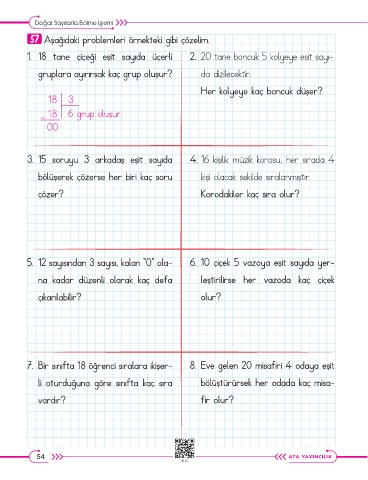 Doğal Sayılarla Bölme İşlemi
57 Aşağıdaki problemleri örnekteki gibi çözelim.
1. 18 tane çiçeği eşit sayıda üçerli
gruplara ayırırsak kaç grup oluşur?
18 3
- 18 6 grup oluşur.
00
2. 20 tane boncuk 5 kolyeye eşit sayı-
da dizilecektir.
Her kolyeye kaç boncuk düşer?
3. 15 soruyu 3 arkadaş eşit sayıda
bölüşerek çözerse her biri kaç soru
çözer?
4. 16 kişilik müzik korosu, her sırada 4
kişi olacak şekilde sıralanmıştır.
Korodakiler kaç sıra olur?
5. 12 sayısından 3 sayısı, kalan "0" ola-
na kadar düzenli olarak kaç defa
çıkarılabilir?
6. 10 çiçek 5 vazoya eşit sayıda yer-
leştirilirse her vazoda kaç çiçek
olur?
7. Bir sınıfta 18 öğrenci sıralara ikişer-
li oturduğuna göre sınıfta kaç sıra
vardır?
8. Eve gelen 20 misafiri 4 odaya eşit
bölüştürürsek her odada kaç misa-
fir olur?
54
ATA YAYINCILIK